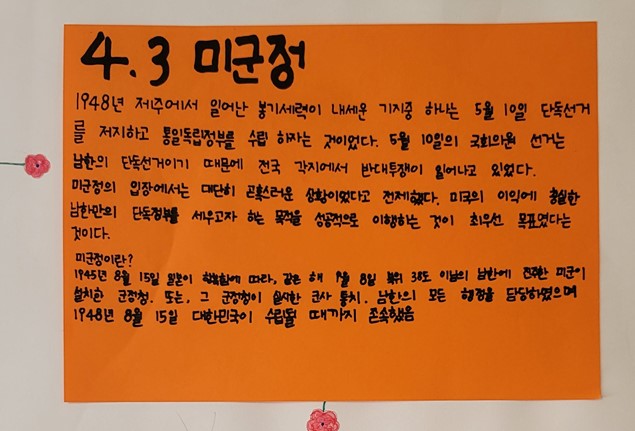 4.3 미군정
1948년 제주에서 일어난 봉기세력이 내세운 기치중 하나는 5월 10일 단독선거
를 저지하고 통일독립정부를 수립 하자는 것이었다. 5월 10일의 국회의원 선거는
남한의 단독선거이기 때문에 전국 각지에서 반대투쟁이 일어나고 있었다.
미군정의 입장에서는 대단히 곤혹스러운 상황이었다고 전제했다. 미국의 이익에 충실한
남한만의 단독정부를 세우고자 하는 목적을 성공적으로 이행하는 것이 최우선 목표였다는
것이다.
미군정이란?
1945년 8월 15일 일본이 항복함에 따라, 같은 해 9월 8일 북위 38도 이남의 남한에 진주한 미군이
설치한 군정청. 또는, 그 군정청이 실시한 군사 통치. 남한의 모든 행정을 담당하였으며
1948년 8월 15일 대한민국이 수립될 때까지 존속했음